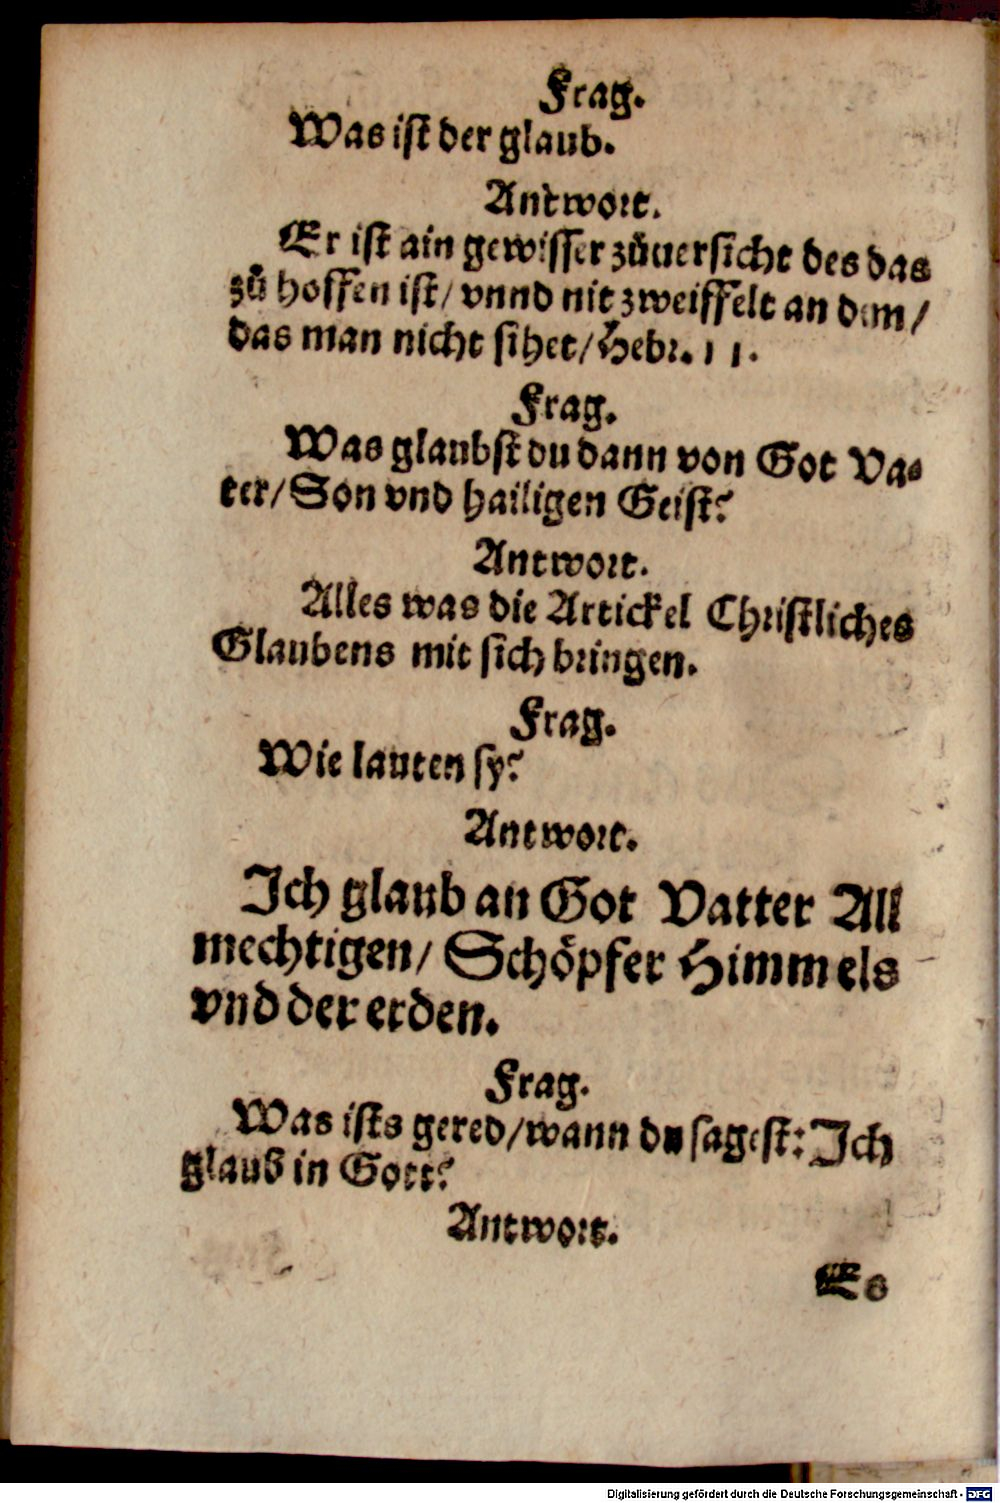 Frag.
Was ist der glaub.
Antwort.
Er ist ain gewisser zůuersicht des das
zů hoffen ist/ vnnd nit zweiffelt an dem/
das man nicht sihet/ Hebr. 11.
Frag.
Was glaubst du dann von Got Va⸗
ter/ Son vnd hailigen Geist?
Antwort.
Alles was die Artickel Christliches
Glaubens mit sich bringen.
Frag.
Wie lauten sy?
Antwort.
Ich glaub an Got Vatter All
mechtigen/ Schöpfer Himmels
vnd der erden.
Frag.
Was ists gered/ wann du sagest: Ich
glaub in Gott?
Antwort.
Es
Digitalisierung gefördert durch die Deutsche Forschungsgemeinschaft - DFG